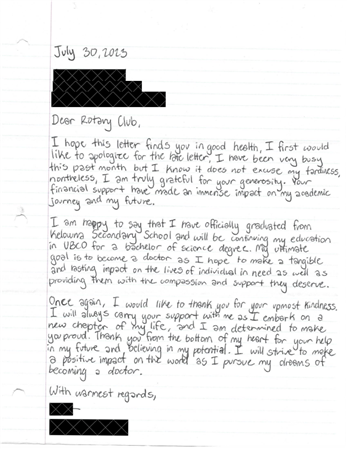 July 30, 2023
Dear Rotary Club,
I hope this letter finds you in good health, I first would
like to apologize for the late letter, I have been very busy
this past month but I know it does not excuse my tardiness,
nontheless, I am truly grateful for your generosity. Your
financial support have made an immense impact on my academic
journey and my future.
I am happy to say that I have officially graduated from
Kelowna Secondary School and will be continuing my education
in UBCO for a bachelor of science degree. My ultimate
goal is to become a doctor as I hope to make a tangible
and lasting impact on the lives of individual in need as well as
providing them with the compassion and support they deserve.
Once again, I would like to thank you for your upmost kindness.
I will always carry your support with me as I embark on a
new chapter of my life, and I am determined to make
you proud. Thank you from the bottom of my heart for your help
in my future and believing in my potential. I will strive to make
a positive impact on the world as I pursue my dreams of
becoming a doctor.
With warmest regards,